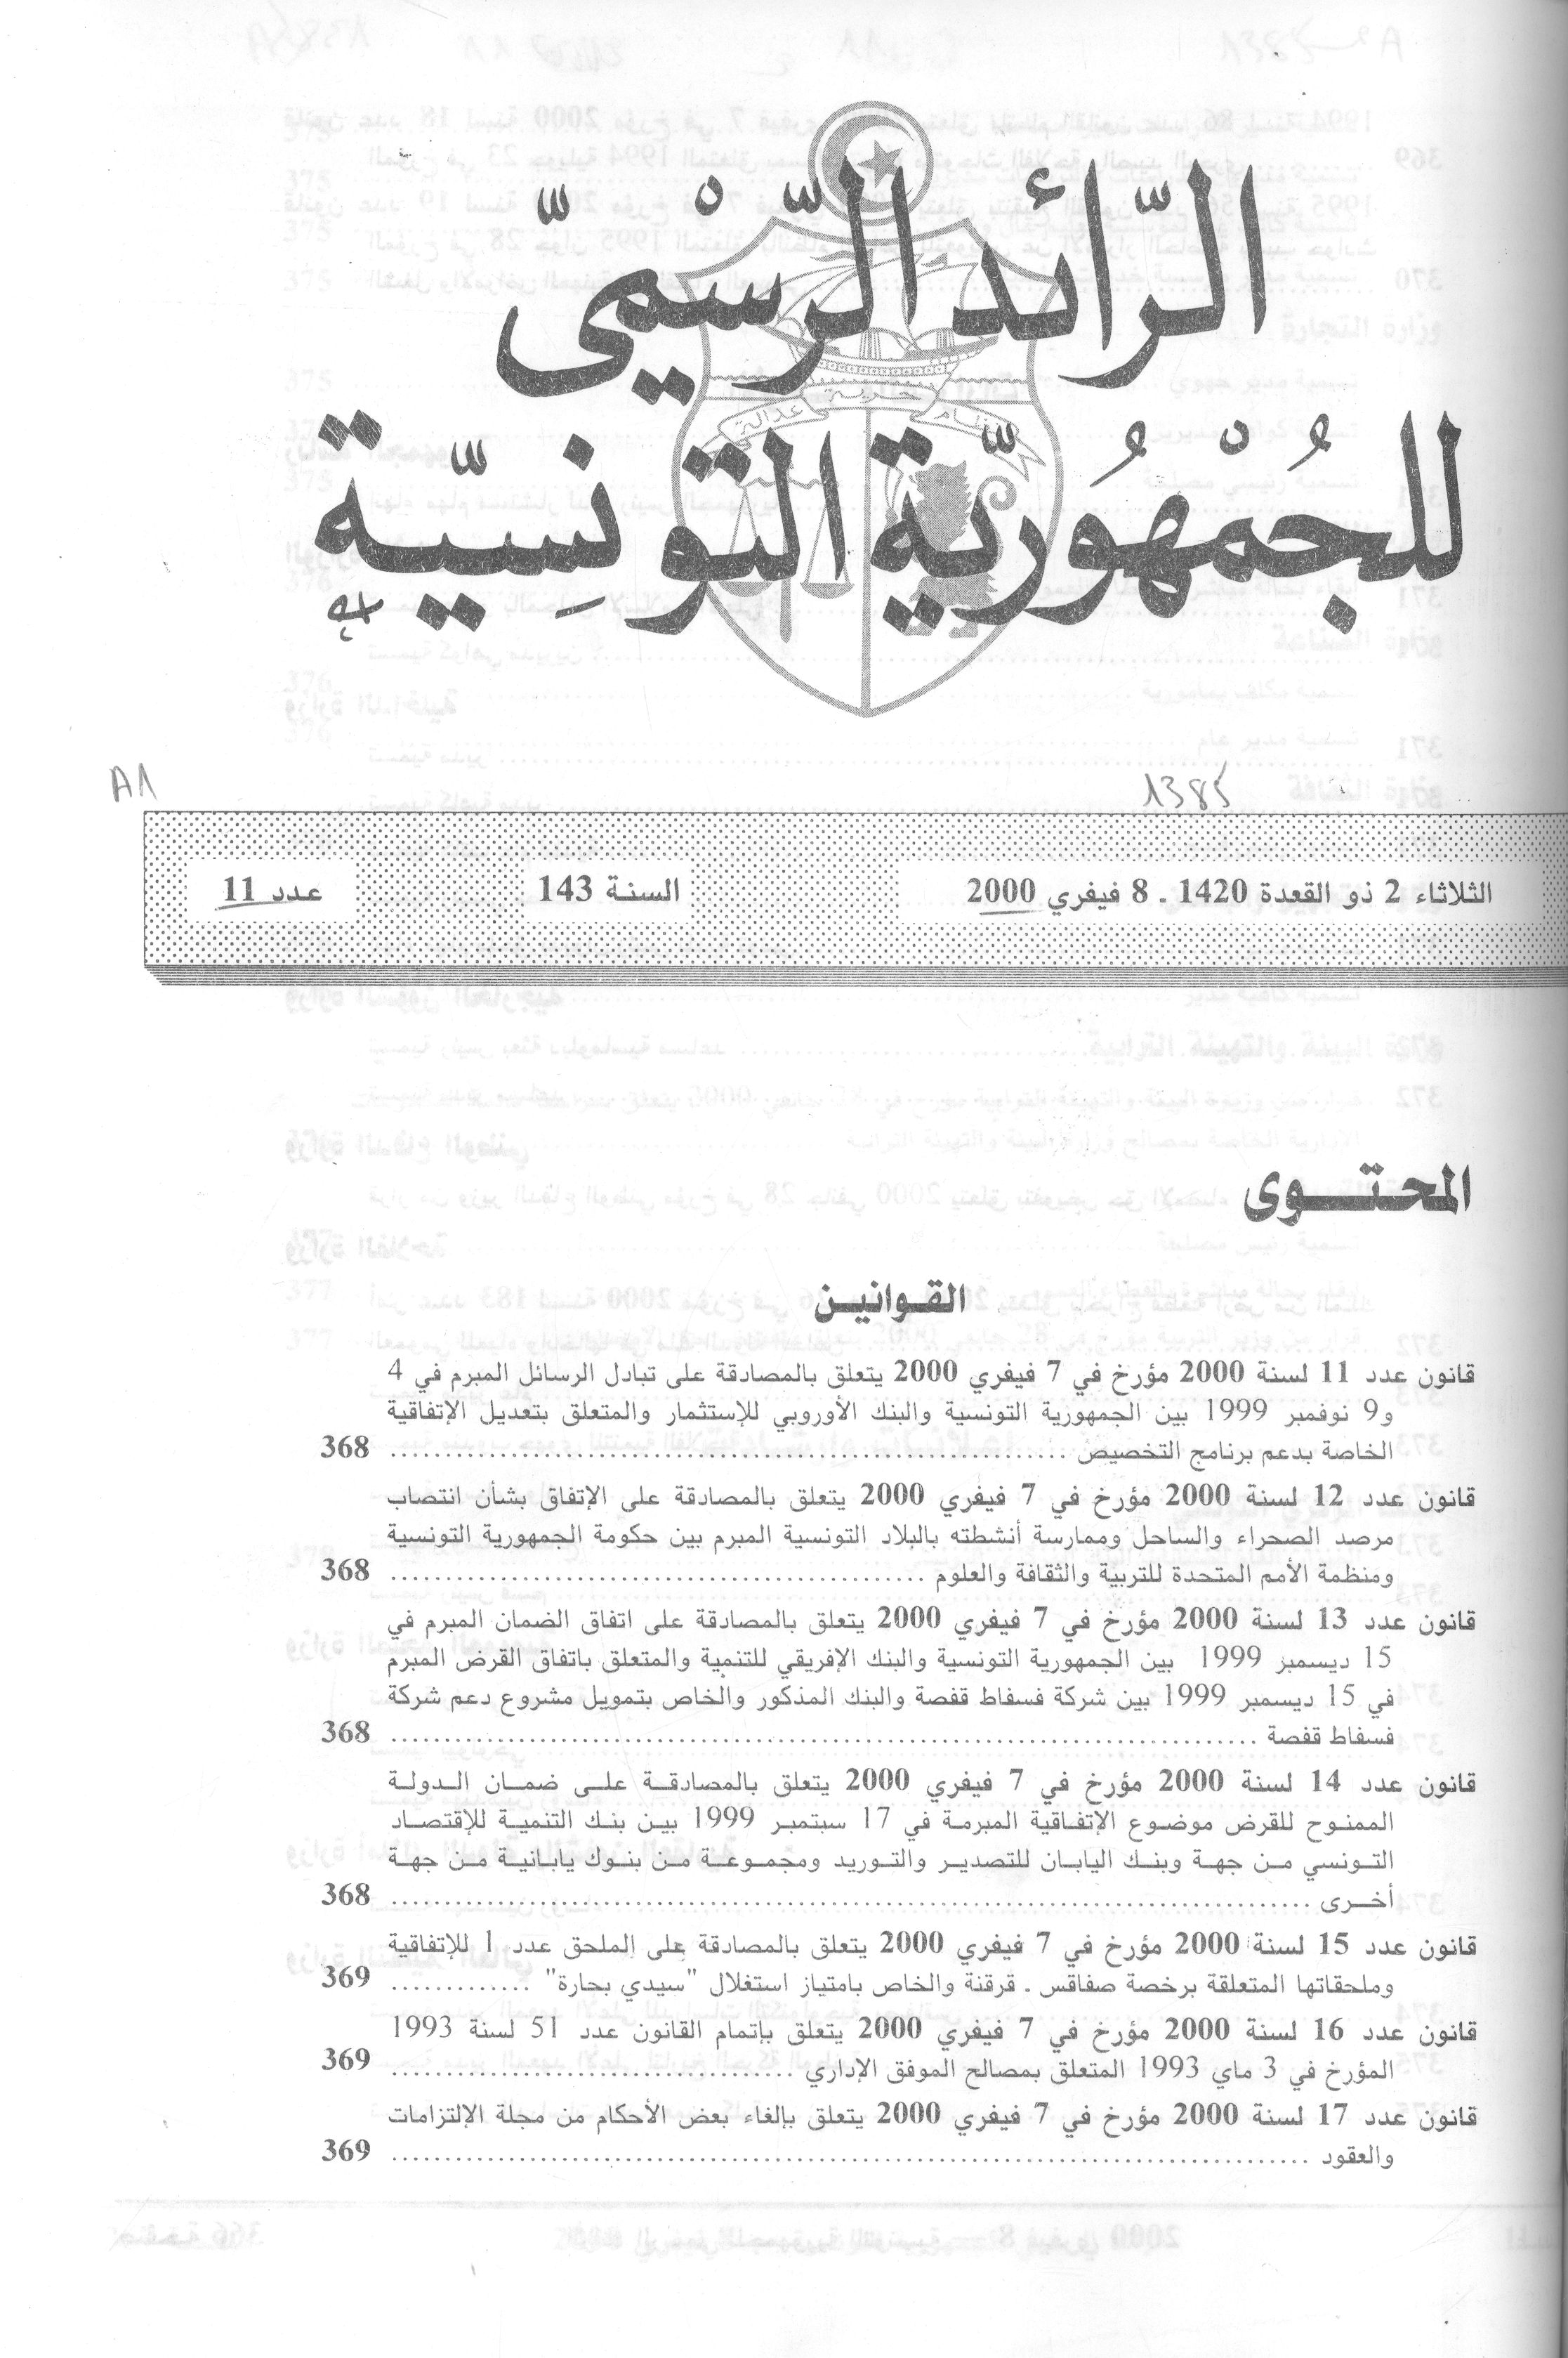 الرّائد الرّسْميّ
للجُمْهُوريّة التونِسيّة
نظام حرية عدالة
A1
1385
الثلاثاء 2 ذو القعدة 1420 ـ 8 فيفري 2000 السنة 143 عدد 11
المحتوى
القوانين
قانون عدد 11 لسنة 2000 مؤرخ في 7 فيفري 2000 يتعلق بالمصادقة على تبادل الرسائل المبرم في 4
و9 نوفمبر 1999 بين الجمهورية التونسية والبنك الأوروبي للإستثمار والمتعلق بتعديل الإتفاقية
الخاصة بدعم برنامج التخصيص ........ 368
قانون عدد 12 لسنة 2000 مؤرخ في 7 فيفري 2000 يتعلق بالمصادقة على الإتفاق بشأن انتصاب
مرصد الصحراء والساحل وممارسة أنشطته بالبلاد التونسية المبرم بين حكومة الجمهورية التونسية
ومنظمة الأمم المتحدة للتربية والثقافة والعلوم ........ 368
قانون عدد 13 لسنة 2000 مؤرخ في 7 فيفري 2000 يتعلق بالمصادقة على اتفاق الضمان المبرم في
15 ديسمبر 1999 بين الجمهورية التونسية والبنك الإفريقي للتنمية والمتعلق باتفاق القرض المبرم
في 15 ديسمبر 1999 بين شركة فسفاط قفصة والبنك المذكور والخاص بتمويل مشروع دعم شركة
فسفاط قفصة ........ 368
قانون عدد 14 لسنة 2000 مؤرخ في 7 فيفري 2000 يتعلق بالمصادقة على ضمان الدولة
الممنوح للقرض موضوع الإتفاقية المبرمة في 17 سبتمبر 1999 بين بنك التنمية للإقتصاد
التونسي من جهة وبنك اليابان للتصدير والتوريد ومجموعة من بنوك يابانية من جهة
أخرى ........ 368
قانون عدد 15 لسنة 2000 مؤرخ في 7 فيفري 2000 يتعلق بالمصادقة على الملحق عدد 1 للإتفاقية
وملحقاتها المتعلقة برخصة صفاقس ـ قرقنة والخاص بامتياز استغلال "سيدي بحارة" ........ 369
قانون عدد 16 لسنة 2000 مؤرخ في 7 فيفري 2000 يتعلق بإتمام القانون عدد 51 لسنة 1993
المؤرخ في 3 ماي 1993 المتعلق بمصالح الموفق الإداري ........ 369
قانون عدد 17 لسنة 2000 مؤرخ في 7 فيفري 2000 يتعلق بإلغاء بعض الأحكام من مجلة الإلتزامات
والعقود ........ 369